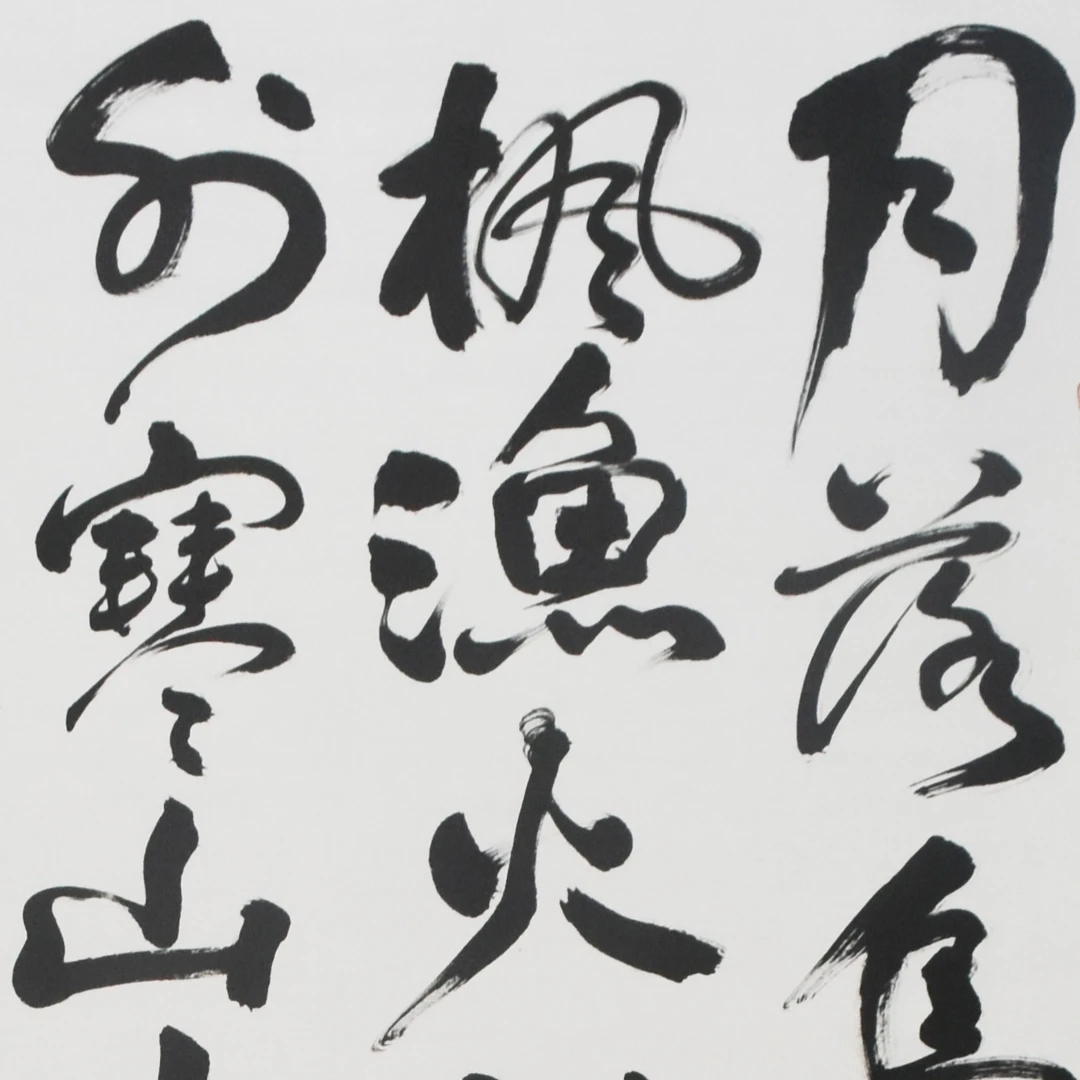 月落
楓漁火
外寒山